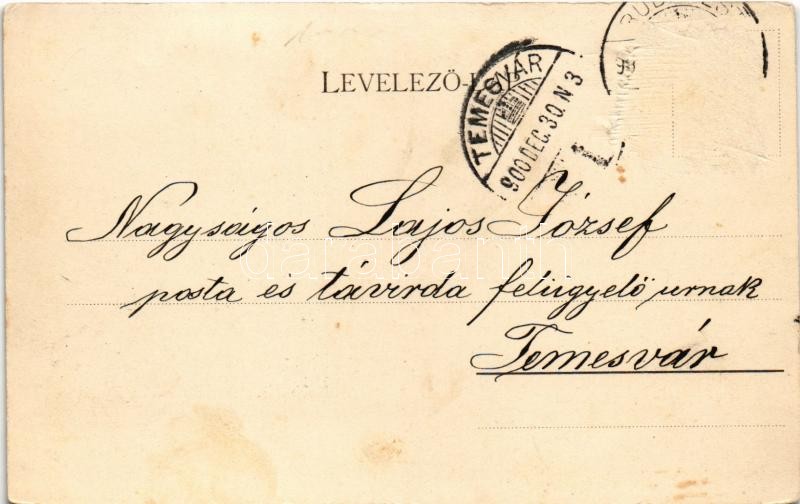 LEVELEZŐ-
TEMESVÁR
900 DEC. 30. N 3
Nagyságos Lajos József
posta és távirda felügyelő urnak
Temesvár
darabanth